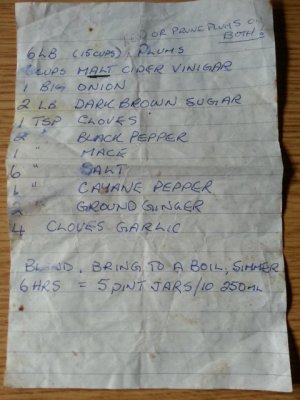 OR PRUNE PLUMS OR
BOTH
6 LB (15 CUPS) PLUMS
CUPS MALT CIDER VINIGAR
1 BIG ONION
2 LB DARK BROWN SUGAR
1 TSP CLOVES
2 " BLACK PEPPER
1 " MACE
6 " SALT
" CAYANE PEPPER
2 " GROUND GINGER
4 CLOVES GARLIC
BLEND. BRING TO A BOIL, SIMMER
6 HRS = 5 PINT JARS/10 250ML